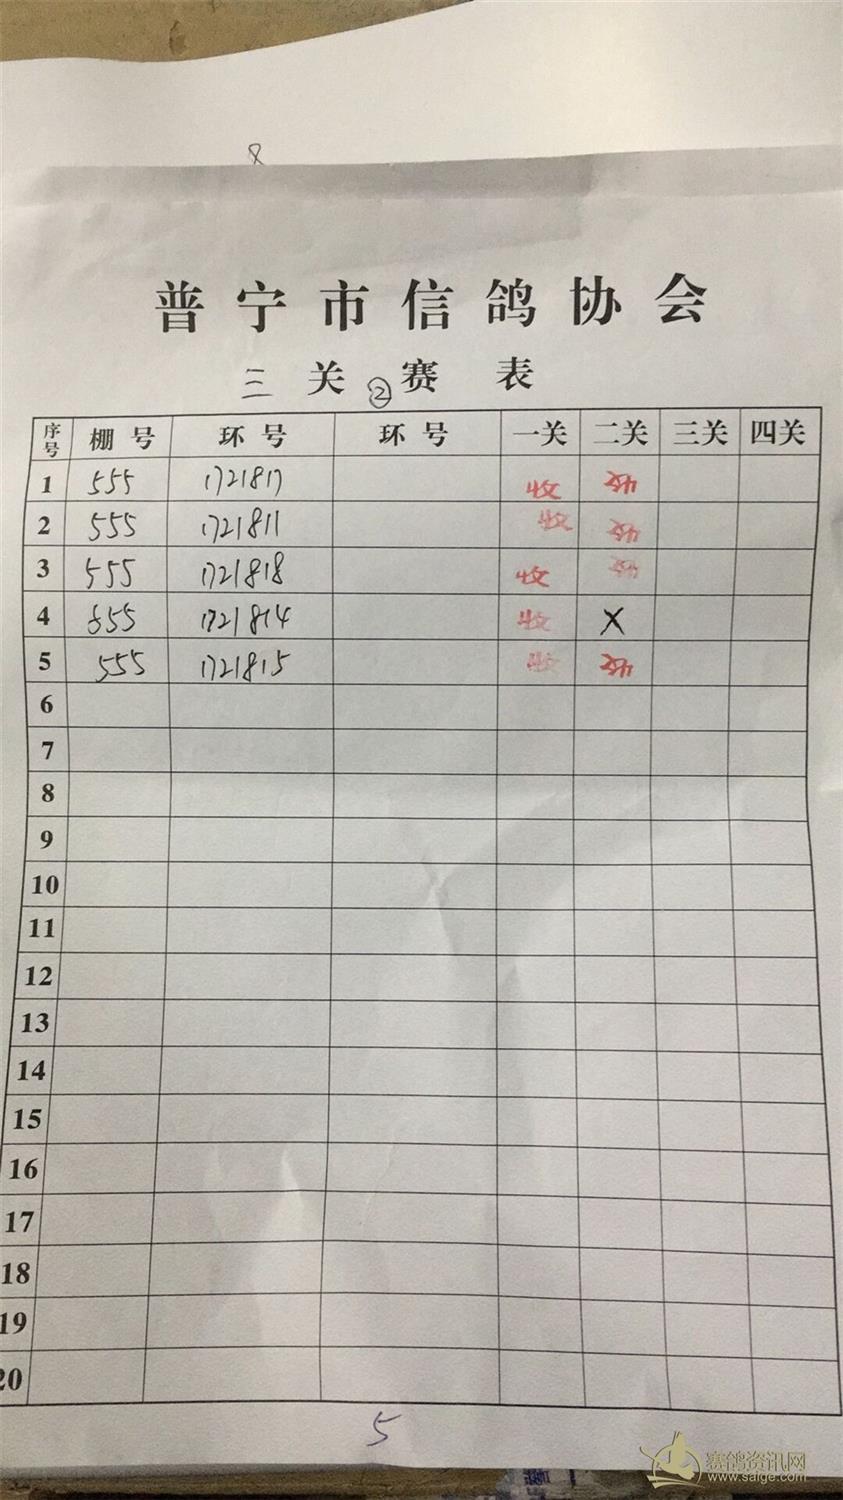 8
普宁市信鸽协会
三关②赛表
序号 棚号 环号 环号 一关 二关 三关 四关
1 555 1721817 收 收
2 555 1721811 收 收
3 555 1721818 收 收
4 555 1721814 收 X
5 555 1721815 收 收
6
7
8
9
10
11
12
13
14
15
16
17
18
19
20
5
赛鸽资讯网
www.saige.com